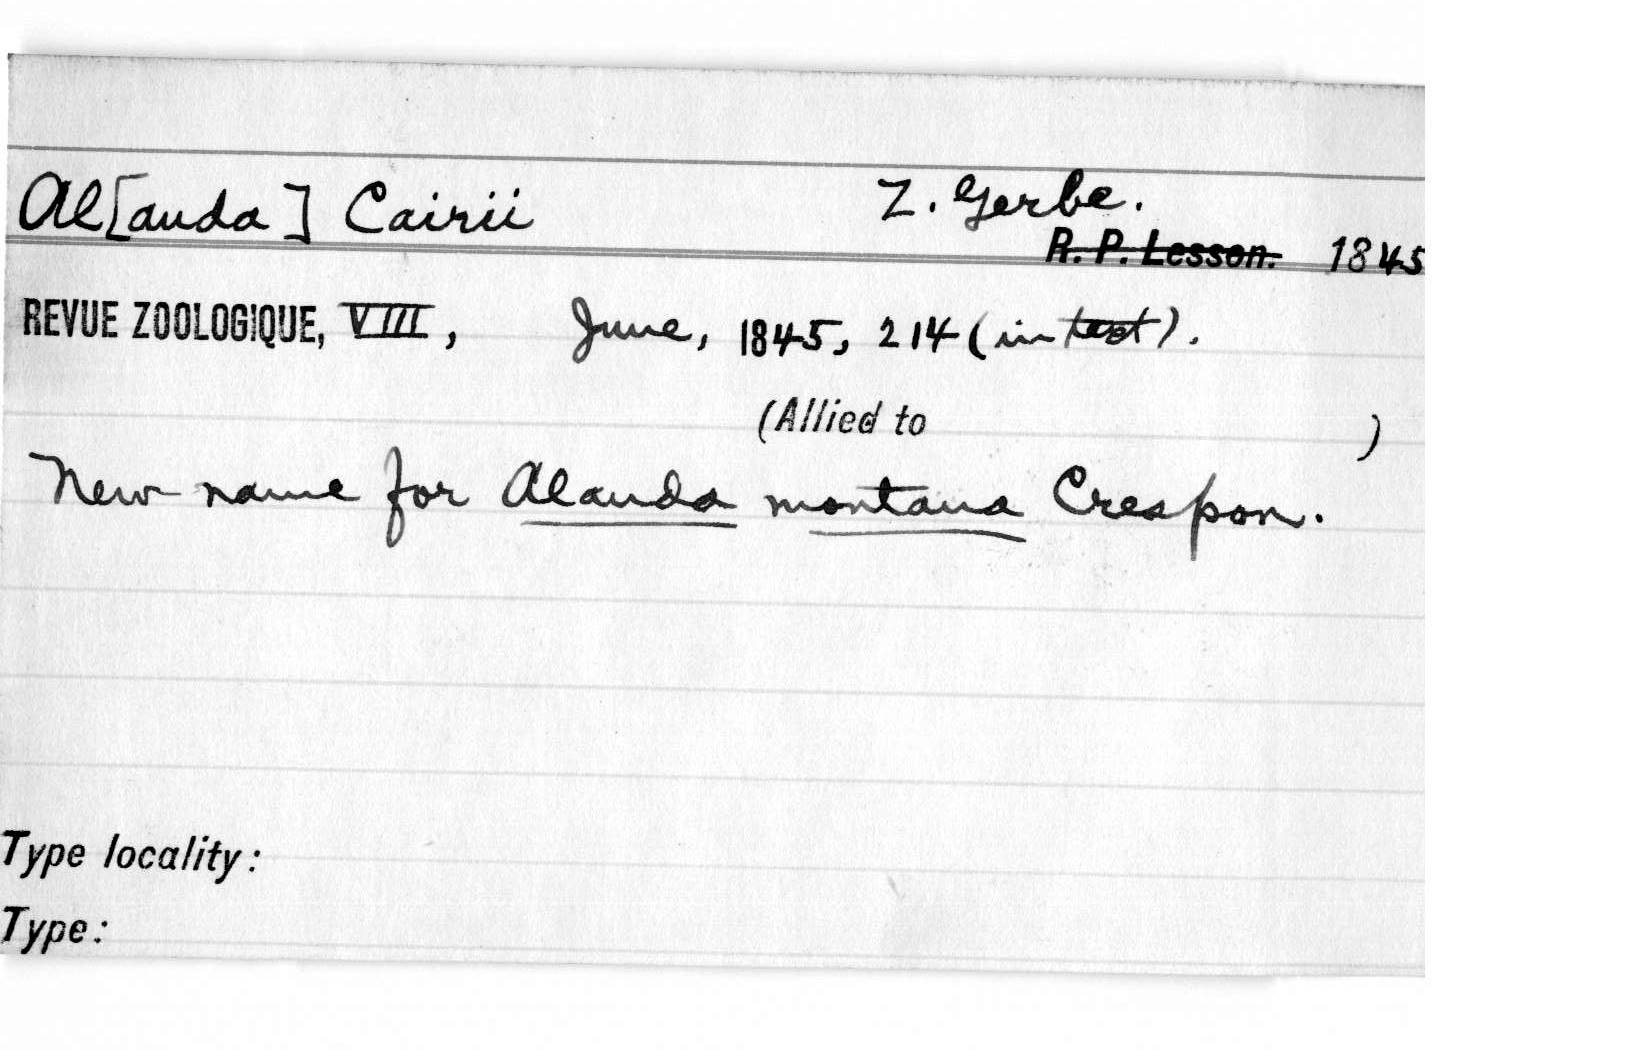 Al[auda] Cairii Z. Gerbe.
R. P. Lesson. 1845
REVUE ZOOLOGIQUE, VIII, June, 1845, 214 (in text).
(Allied to )
New name for Alauda montana Crespon.
Type locality:
Type: